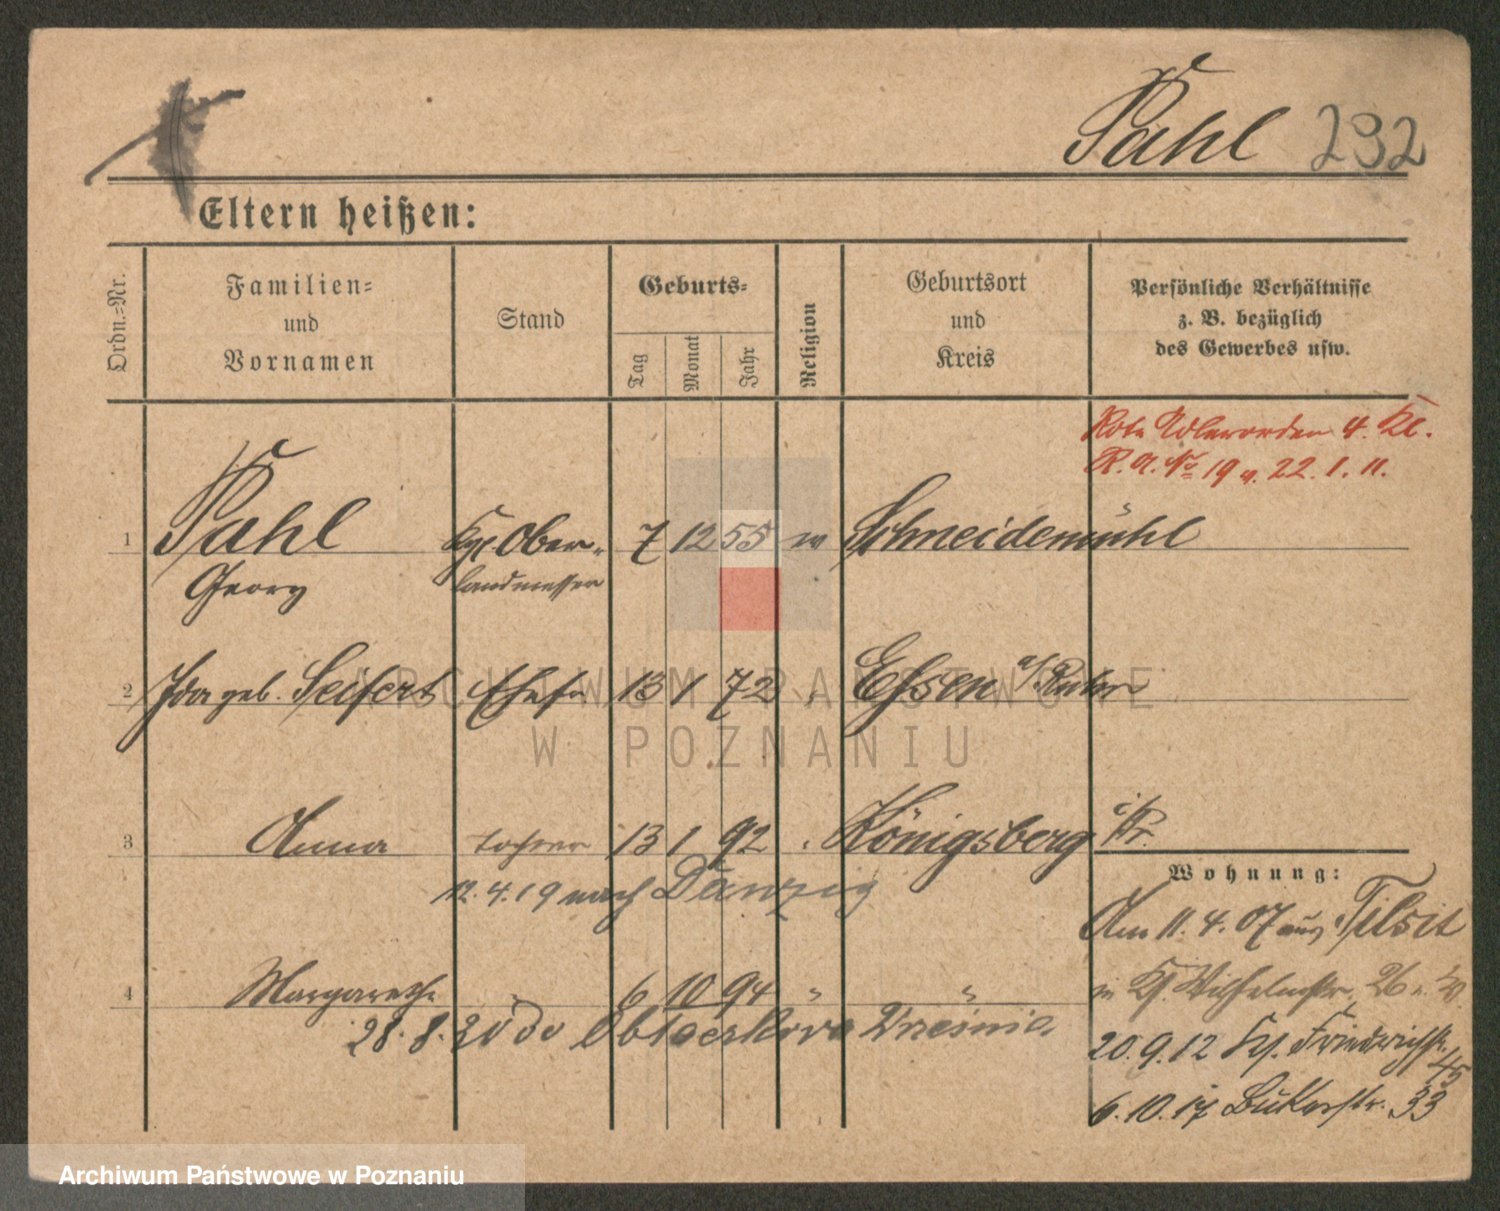 Pahl 292
Eltern heißen:
Ordn.-Nr.
Familien-
und
Vornamen
Stand
Geburts-
Tag
Monat
Jahr
Religion
Geburtsort
und
Kreis
Persönliche Verhältnisse
z. B. bezüglich
des Gewerbes usw.
Rote Adlerorden 4. Kl.
R. A. No 19 v. 22. 1. 11.
1 Pahl Kgl. Ober- 7 12 55 Schneidemühl
Georg landmesser
2 Ida geb. Seifert Ehefr 13 1 72 Essen a/Ruhr
3 Anna Tochter 13 1 92 Königsberg i/Pr.
12. 4. 19 nach Danzig
Wohnung:
Am 11. 4. 07 aus Tilsit
4 Margarethe " 6 10 94 " "
Wilhelmstr. 26
28. 8. 20 do Września
20. 9. 12 Friedrichstr.
6. 10. 17 Bukerstr. 33
ARCHIWUM PAŃSTWOWE
W POZNANIU
Archiwum Państwowe w Poznaniu